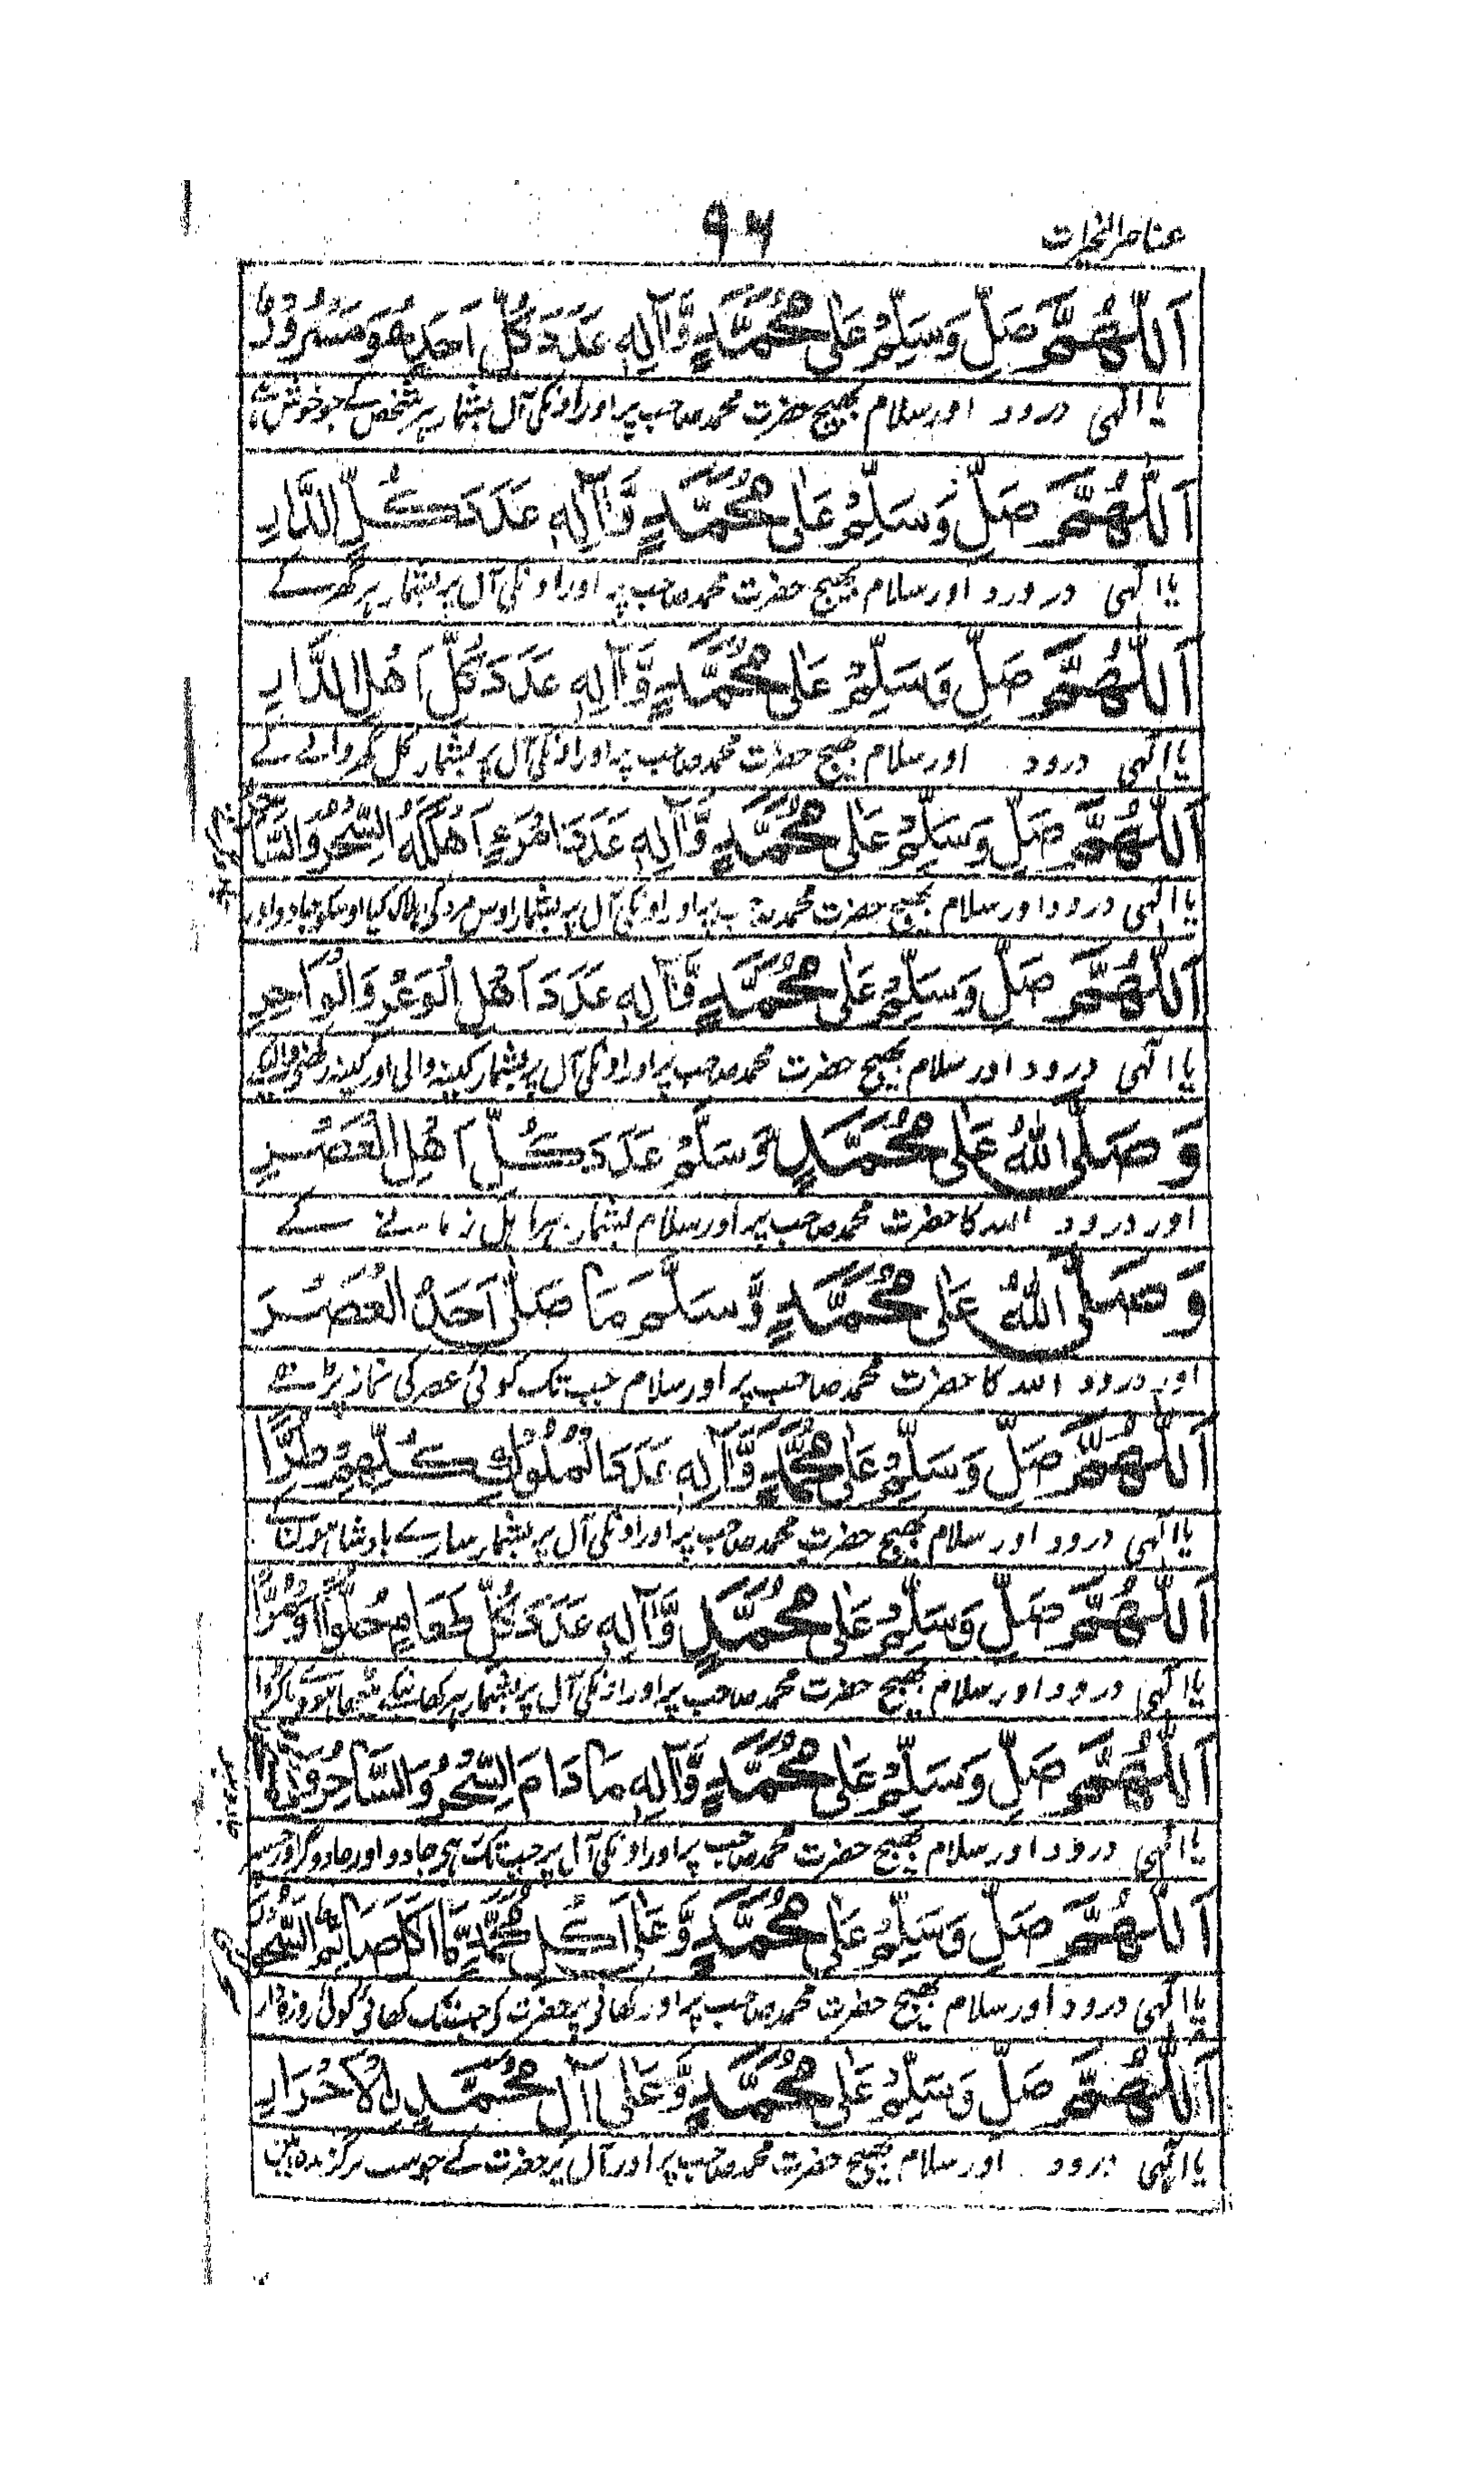 عناصر الخیرات
۹۶
اَللّٰهُمَّ صَلِّ وَسَلِّمْ عَلٰى مُحَمَّدٍ وَّاٰلِهٖ عَدَدَ كُلِّ اَحَدٍ هُوَ مَسْرُوْرٌ
یا الٰہی درود اور سلام بھیج حضرت محمد صاحب پر اور اونکی آل بشمار ہر شخص کے جو خوش ہے
اَللّٰهُمَّ صَلِّ وَسَلِّمْ عَلٰى مُحَمَّدٍ وَّاٰلِهٖ عَدَدَ كُلِّ الدَّارِ
یا الٰہی درورد اور سلام بھیج حضرت محمد صاحب پر اور اونکی آل پر بشمار ہر گھر کے
اَللّٰهُمَّ صَلِّ وَسَلِّمْ عَلٰى مُحَمَّدٍ وَّاٰلِهٖ عَدَدَ كُلِّ اَهْلِ الدَّارِ
یا الٰہی درود اور سلام بھیج حضرت محمد صاحب پر اور اونکی آل پر بشمار کل گھر والے کے
اَللّٰهُمَّ صَلِّ وَسَلِّمْ عَلٰى مُحَمَّدٍ وَّاٰلِهٖ عَدَدَ امْرَءٍ اَهْلَكَهُ السِّحْرُ وَالسَّاحِرُ
یا الٰہی درود اور سلام بھیج حضرت محمد صاحب پر اور اونکی آل پر بشمار اوس مرد کی ہلاک کیا اوسکو جادو اور
اَللّٰهُمَّ صَلِّ وَسَلِّمْ عَلٰى مُحَمَّدٍ وَّاٰلِهٖ عَدَدَ اَهْلِ الْوَغْرِ وَالْوَاحِرِ
یا الٰہی درود اور سلام بھیج حضرت محمد صاحب پر اور اونکی آل پر بشمار کینہ والی اور کینہ رکھنی والے
وَصَلَّى اللّٰهُ عَلٰى مُحَمَّدٍ وَسَلَّمْ عَدَدَ كُلِّ اَهْلِ الْعَصْرِ
اور درود اللہ کا حضرت محمد صاحب پر اور سلام بشمار ہر اہل زمانے کے
وَصَلَّى اللّٰهُ عَلٰى مُحَمَّدٍ وَّسَلَّمَ مَا صَلّٰى اَحَدُ الْعَصْرَ
اور درود اللہ کا حضرت محمد صاحب پر اور سلام جب تک کوئی عصر کی نماز پڑہے
اَللّٰهُمَّ صَلِّ وَسَلِّمْ عَلٰى مُحَمَّدٍ وَّاٰلِهٖ عَدَدَ الْمُلُوْكِ كُلِّهِمْ طُرًّا
یا الٰہی درود اور سلام بھیج حضرت محمد صاحب پر اور اونکی آل پر بشمار سارے بادشاہونکے
اَللّٰهُمَّ صَلِّ وَسَلِّمْ عَلٰى مُحَمَّدٍ وَّاٰلِهٖ عَدَدَ كُلِّ طَعَامٍ حُلْوًا اَوْ مُرًّا
یا الٰہی درود اور سلام بھیج حضرت محمد صاحب پر اور اونکی آل پر بشمار ہر کھانیکے میٹھا ہووے یا کڑوا
اَللّٰهُمَّ صَلِّ وَسَلِّمْ عَلٰى مُحَمَّدٍ وَّاٰلِهٖ مَا دَامَ السِّحْرُ وَالسَّاحِرُ
یا الٰہی درود اور سلام بھیج حضرت محمد صاحب پر اور اونکی آل پر جب تک ہی جادو اور جادوگر اور جسپر
اَللّٰهُمَّ صَلِّ وَسَلِّمْ عَلٰى مُحَمَّدٍ وَّعَلٰى اٰلِ مُحَمَّدٍ مَّا اَكَلَ صَائِمُ السَّحُوْرَ
یا الٰہی درود اور سلام بھیج حضرت محمد صاحب پر اور حضرت کی جبتک کھائی کوئی روزہ دار
اَللّٰهُمَّ صَلِّ وَسَلِّمْ عَلٰى مُحَمَّدٍ وَّعَلٰى اٰلِ مُحَمَّدِ ِالْاَحْرَارِ
یا الٰہی درود اور سلام بھیج حضرت محمد صاحب پر اور آل پر حضرت کے جو سب برگزیدہ ہین